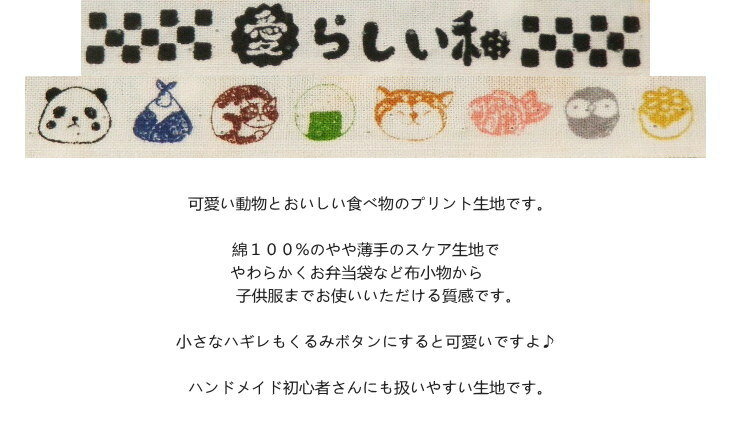 愛らしい和
可愛い動物とおいしい食べ物のプリント生地です。
綿１００％のやや薄手のスケア生地で
やわらかくお弁当袋など布小物から
子供服までお使いいただける質感です。
小さなハギレもくるみボタンにすると可愛いですよ♪
ハンドメイド初心者さんにも扱いやすい生地です。